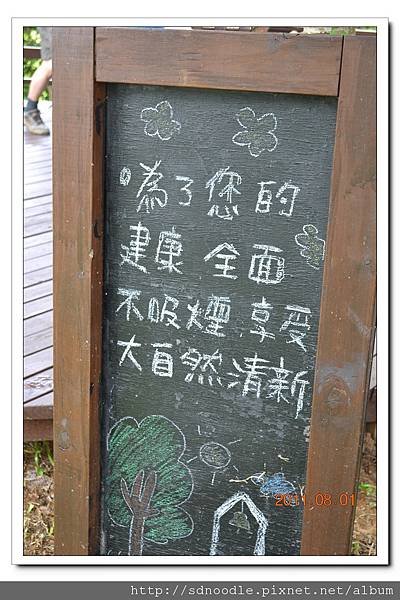 嗡了您的
建康 全面
不吸煙 享受
大自然清新
2011.08.01
http://sdnoodle.pixnet.net/album